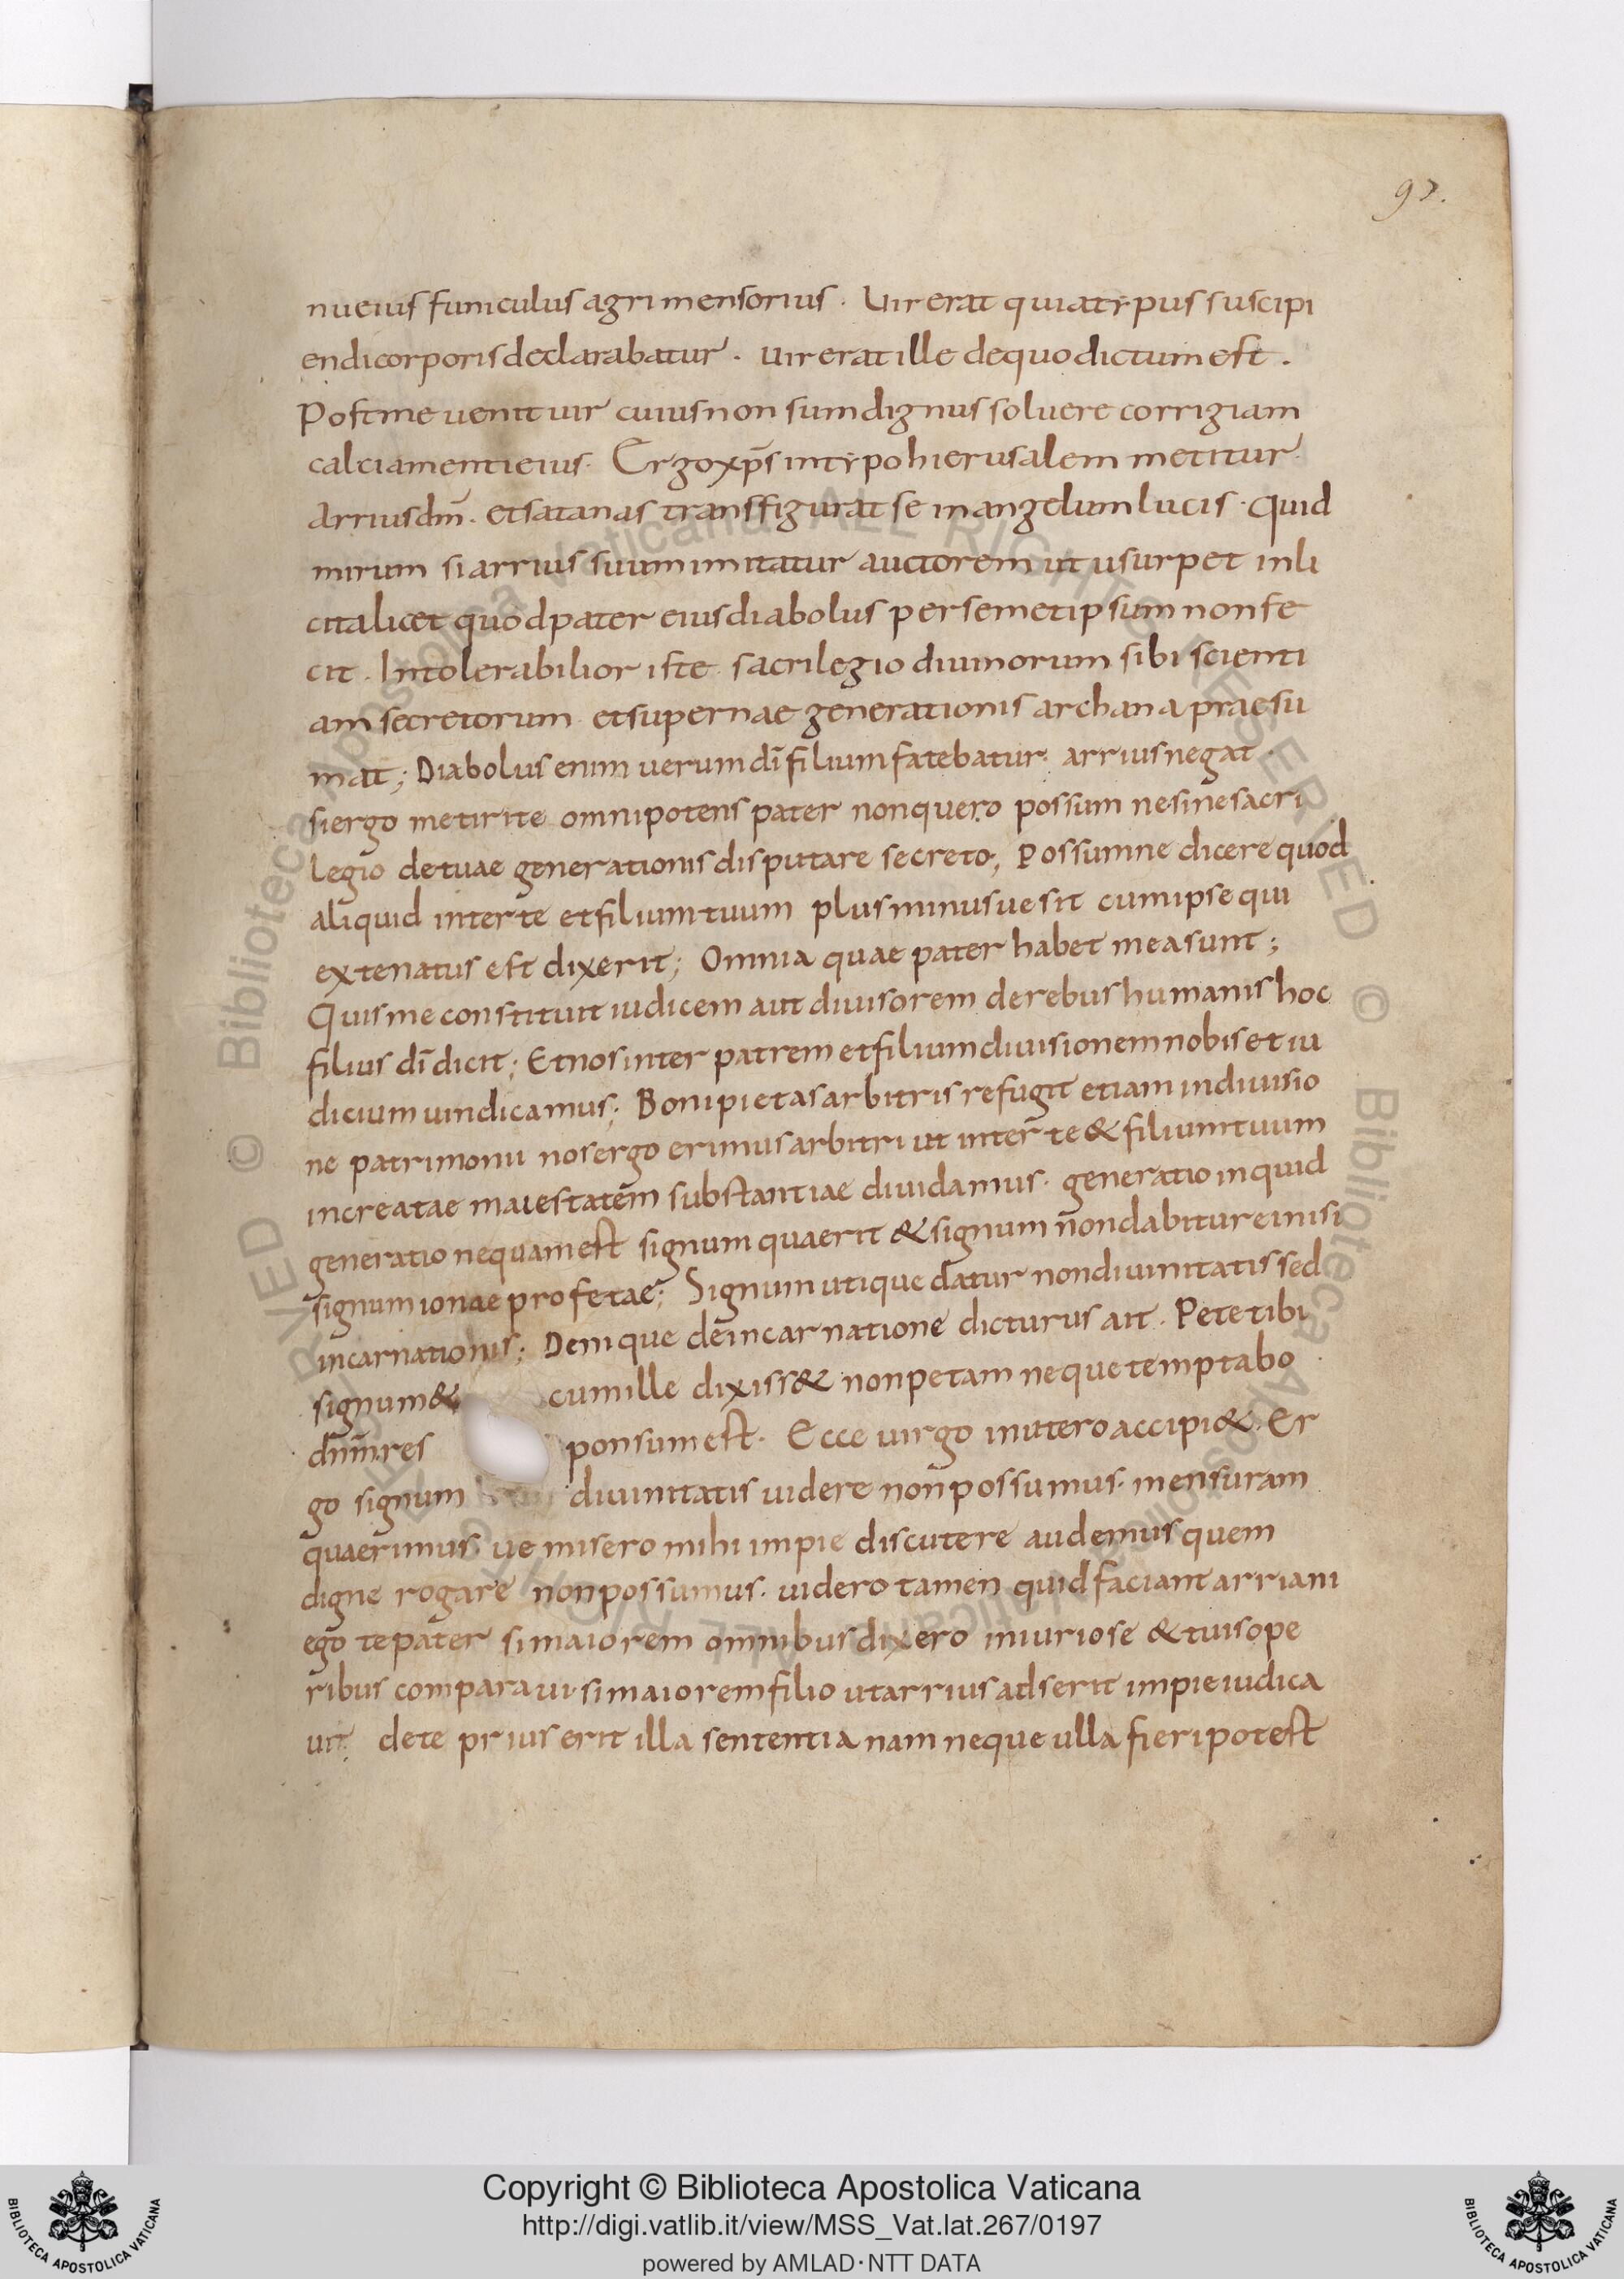 97.
nueius funiculus agri mensorius · Uir erat quia typus suscipi
endi corporis declarabatur · uir erat ille de quo dictum est ·
Post me uenit uir cuius non sum dignus soluere corrigiam
calciamenti eius · Ergo xp̄s in typo hierusalem metitur ·
Arrius dm̄ · et satanas transffigurat se in angelum lucis · Quid
mirum si arrius suum imitatur auctorem ut usurpet inli
cita licet quod pater eius diabolus per semetipsum non fe
cit · Intolerabilior iste sacrilegio diuinorum sibi scienti
am secretorum et supernae generationis archana praesu
mat ; Diabolus enim uerum dī filium fatebatur · arrius negat ·
si ergo metiri te omnipotens pater non quero possum ne sine sacri
legio de tuae generationis disputare secreto ; Possumne dicere quod
aliquid inter te et filium tuum plus minusue sit cum ipse qui
ex te natus est dixerit ; Omnia quae pater habet mea sunt ;
Quis me constituit iudicem aut diuisorem de rebus humanis hoc
filius dī dicit ; Et nos inter patrem et filium diuisionem nobis et iu
dicium uindicamus ; Boni pietas arbitris refugit etiam in diuisio
ne patrimonii nos ergo erimus arbitri ut inter te & filium tuum
increatae maiestatem substantiae diuidamus · generatio inquid
generatio nequam est signum quaerit & signum non dabitur ei nisi
signum ionae profetae ; Signum utique datur non diuinitatis sed
incarnationis ; Denique de incarnatione dicturus ait · Pete tibi
signum & cum ille dixiss& non petam neque temptabo
dnm̄ res ponsum est · Ecce uirgo in utero accipi& · Er
go signum diuinitatis uidere non possumus · mensuram
quaerimus ue misero mihi impie discutere audemus quem
digne rogare non possumus · uidero tamen quid faciant arriani
ego te pater si maiorem omnibus dixero iniuriose & tuis ope
ribus comparaui · si maiorem filio ut arrius adserit impie iudica
ui · de te prius erit illa sententia nam neque ulla fieri potest
Copyright © Biblioteca Apostolica Vaticana
http://digi.vatlib.it/view/MSS_Vat.lat.267/0197
powered by AMLAD · NTT DATA
BIBLIOTECA APOSTOLICA VATICANA
BIBLIOTECA APOSTOLICA VATICANA